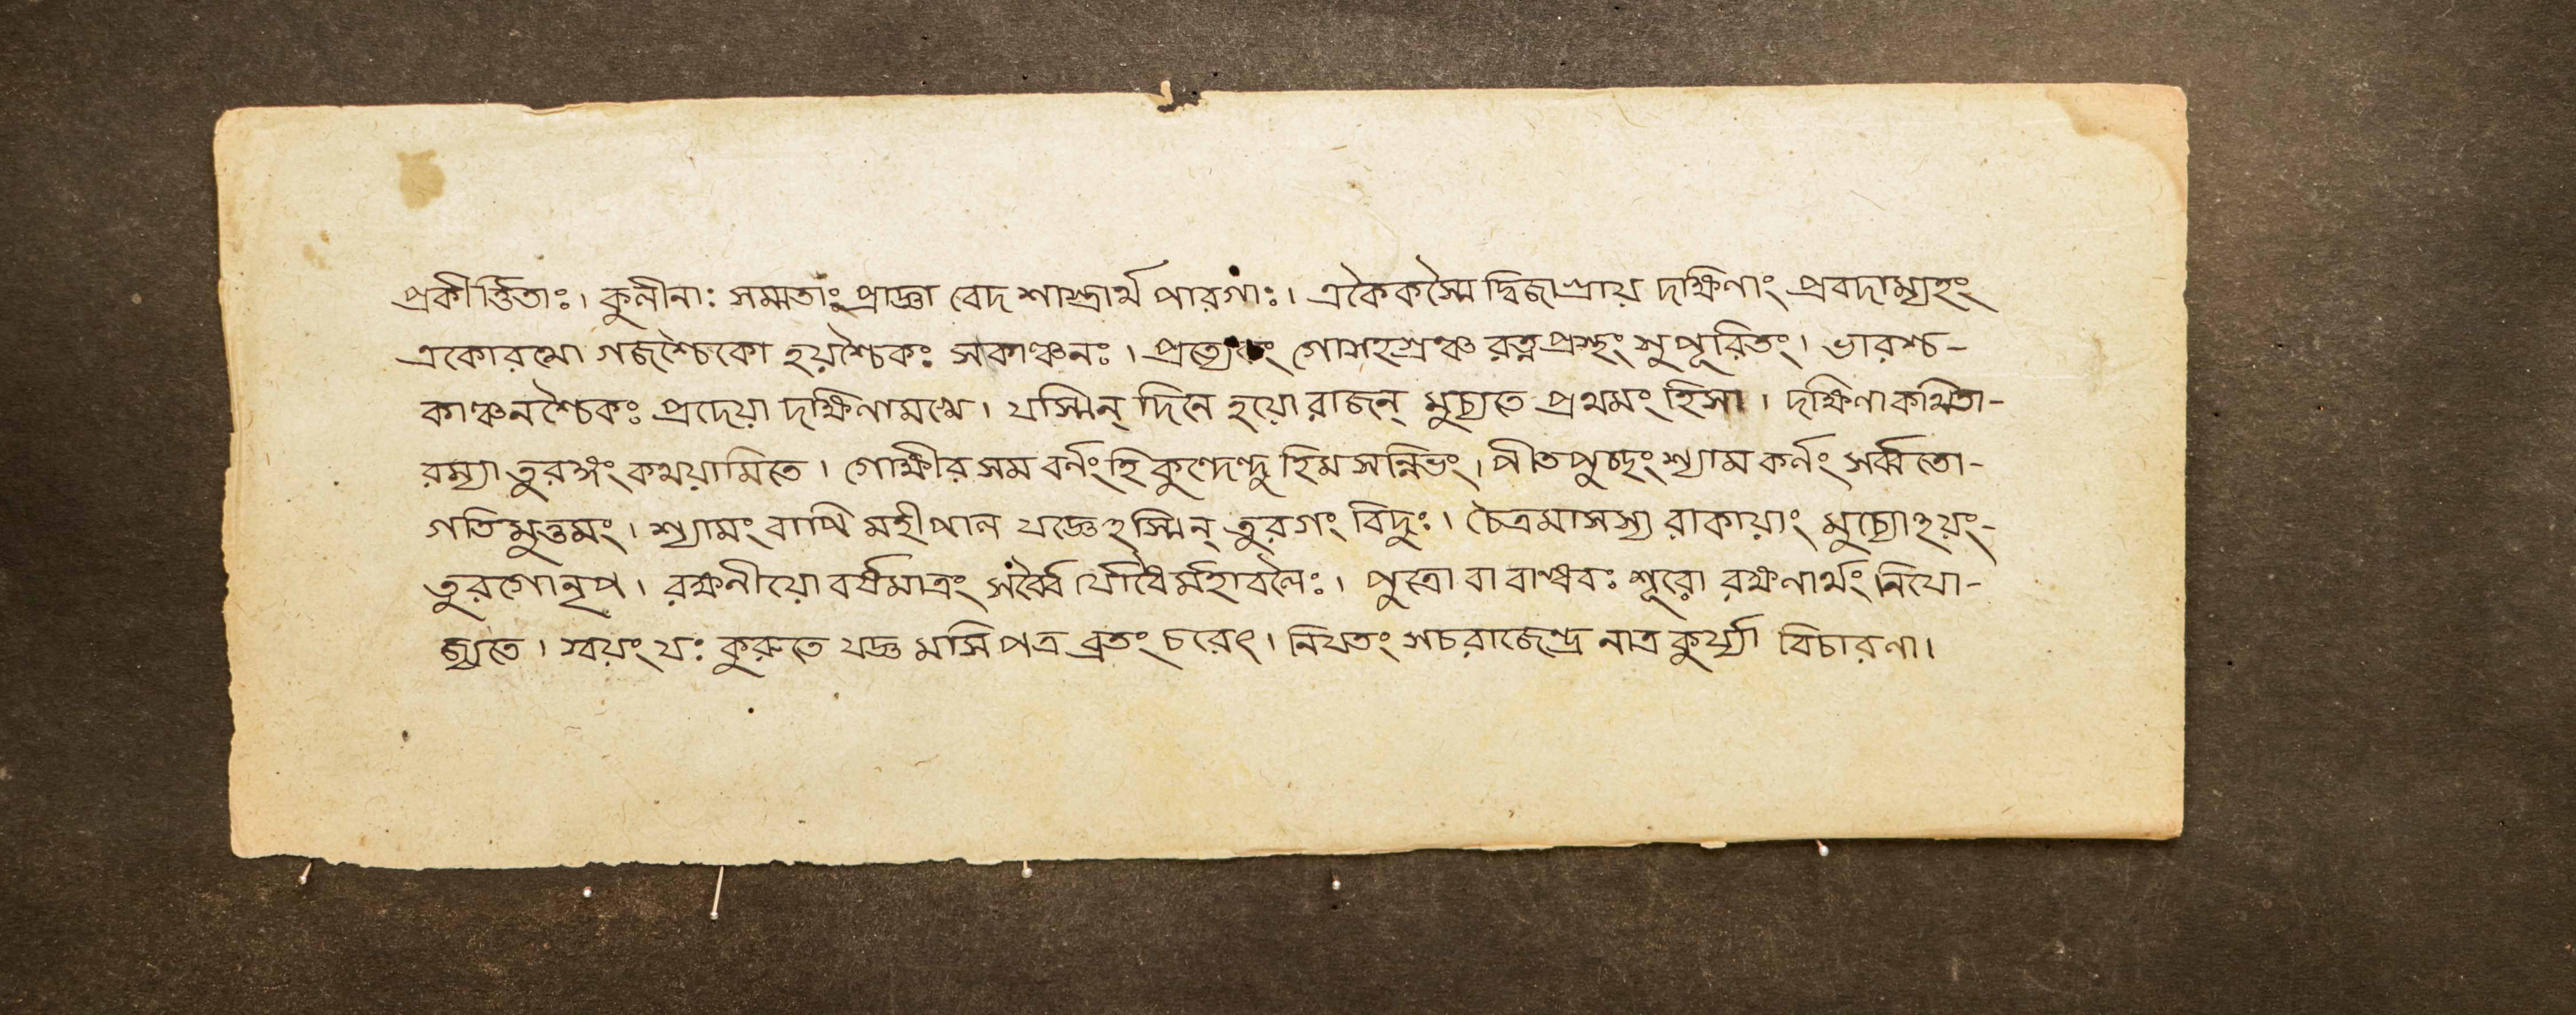 প্রকীর্ত্তিতাঃ। কুলীনাঃ সম্মতাঃ প্রাজ্ঞা বেদ শাস্ত্রার্থ পারগাঃ। একৈকস্মৈ দ্বিজাগ্রায় দক্ষিণাং প্রবদাম্যহং
একোরথো গজশ্চৈকো হয়শ্চৈকঃ সকাঞ্চনঃ। প্রত্যেকং গোসহস্রঞ্চ রত্নপ্রস্থং সুপূরিতং। ভারশ্চ-
কাঞ্চনশ্চৈকঃ প্রদেয়া দক্ষিণামখে। যস্মিন্ দিনে হয়ো রাজন্ মুচ্যতে প্রথমং হিসা। দক্ষিণাকথিতা-
রম্যা তুরঙ্গং কথয়ামিতে। গোক্ষীর সম বর্নং হি কুন্দেন্দু হিম সন্নিভং। পীতপুচ্ছং শ্যাম কর্নং সর্ব্বতো-
গতিমুত্তমং। শ্যামং বাপি মহীপাল যজ্ঞেহস্মিন্ তুরগং বিদুঃ। চৈত্রমাসস্য রাকায়াং মুচ্যোহয়ং-
তুরগোনৃপ। রক্ষনীয়ো বর্ষমাত্রং সর্ব্বৈর্যোধৈর্মহাবলৈঃ। পুত্রো বা বান্ধবঃ শূরো রক্ষণার্থং নিযো-
জ্যতে। স্বয়ং যঃ কুরুতে যজ্ঞ মসি পত্র ব্রতং চরেৎ। নিযতং সচরাজেন্দ্র নাত্র কুর্য্যা বিচারণা।